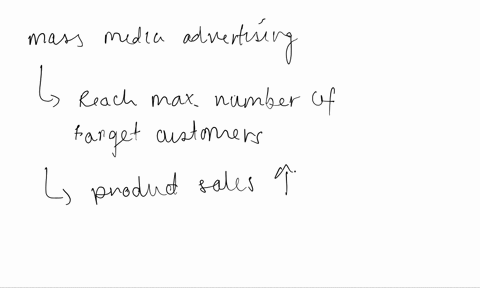 mass media advertising
↳ Reach max. number of
target customers
↳ product sales ↑